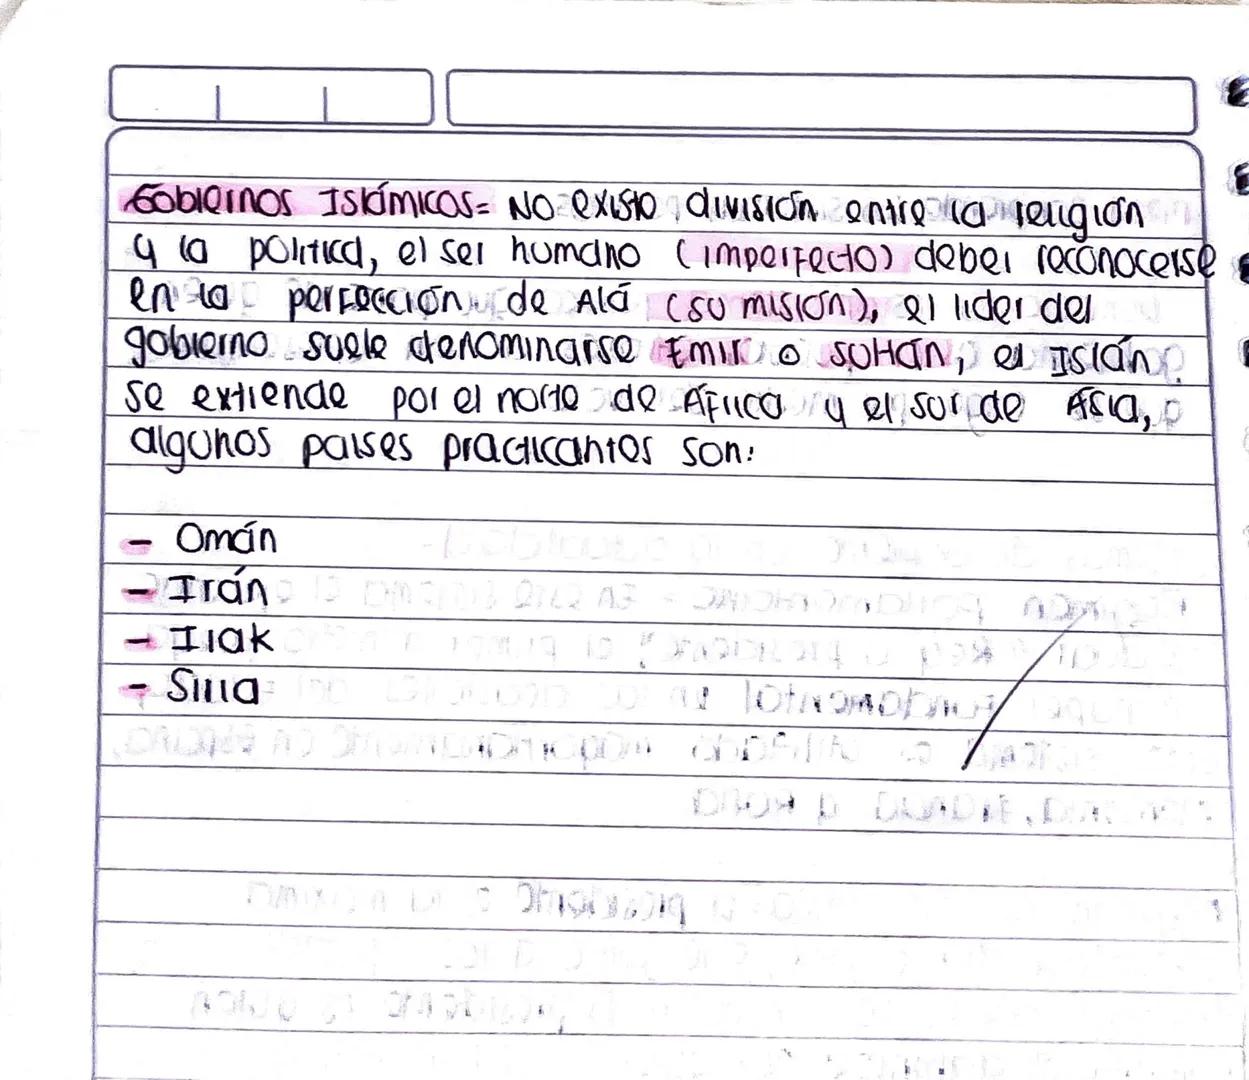 Gobiernos Islámicos= No existe división entre la religión
y la política, el ser humano (imperfecto) deber reconocerse
en la perfección de Alá (su misión), el lider del
gobierno suele denominarse Emir o sultán, el Islán
se extiende por el norte de África y el sur de Asia,
algunos paises practicantes son:
- Omán
- Irán
- Irak
- Siria